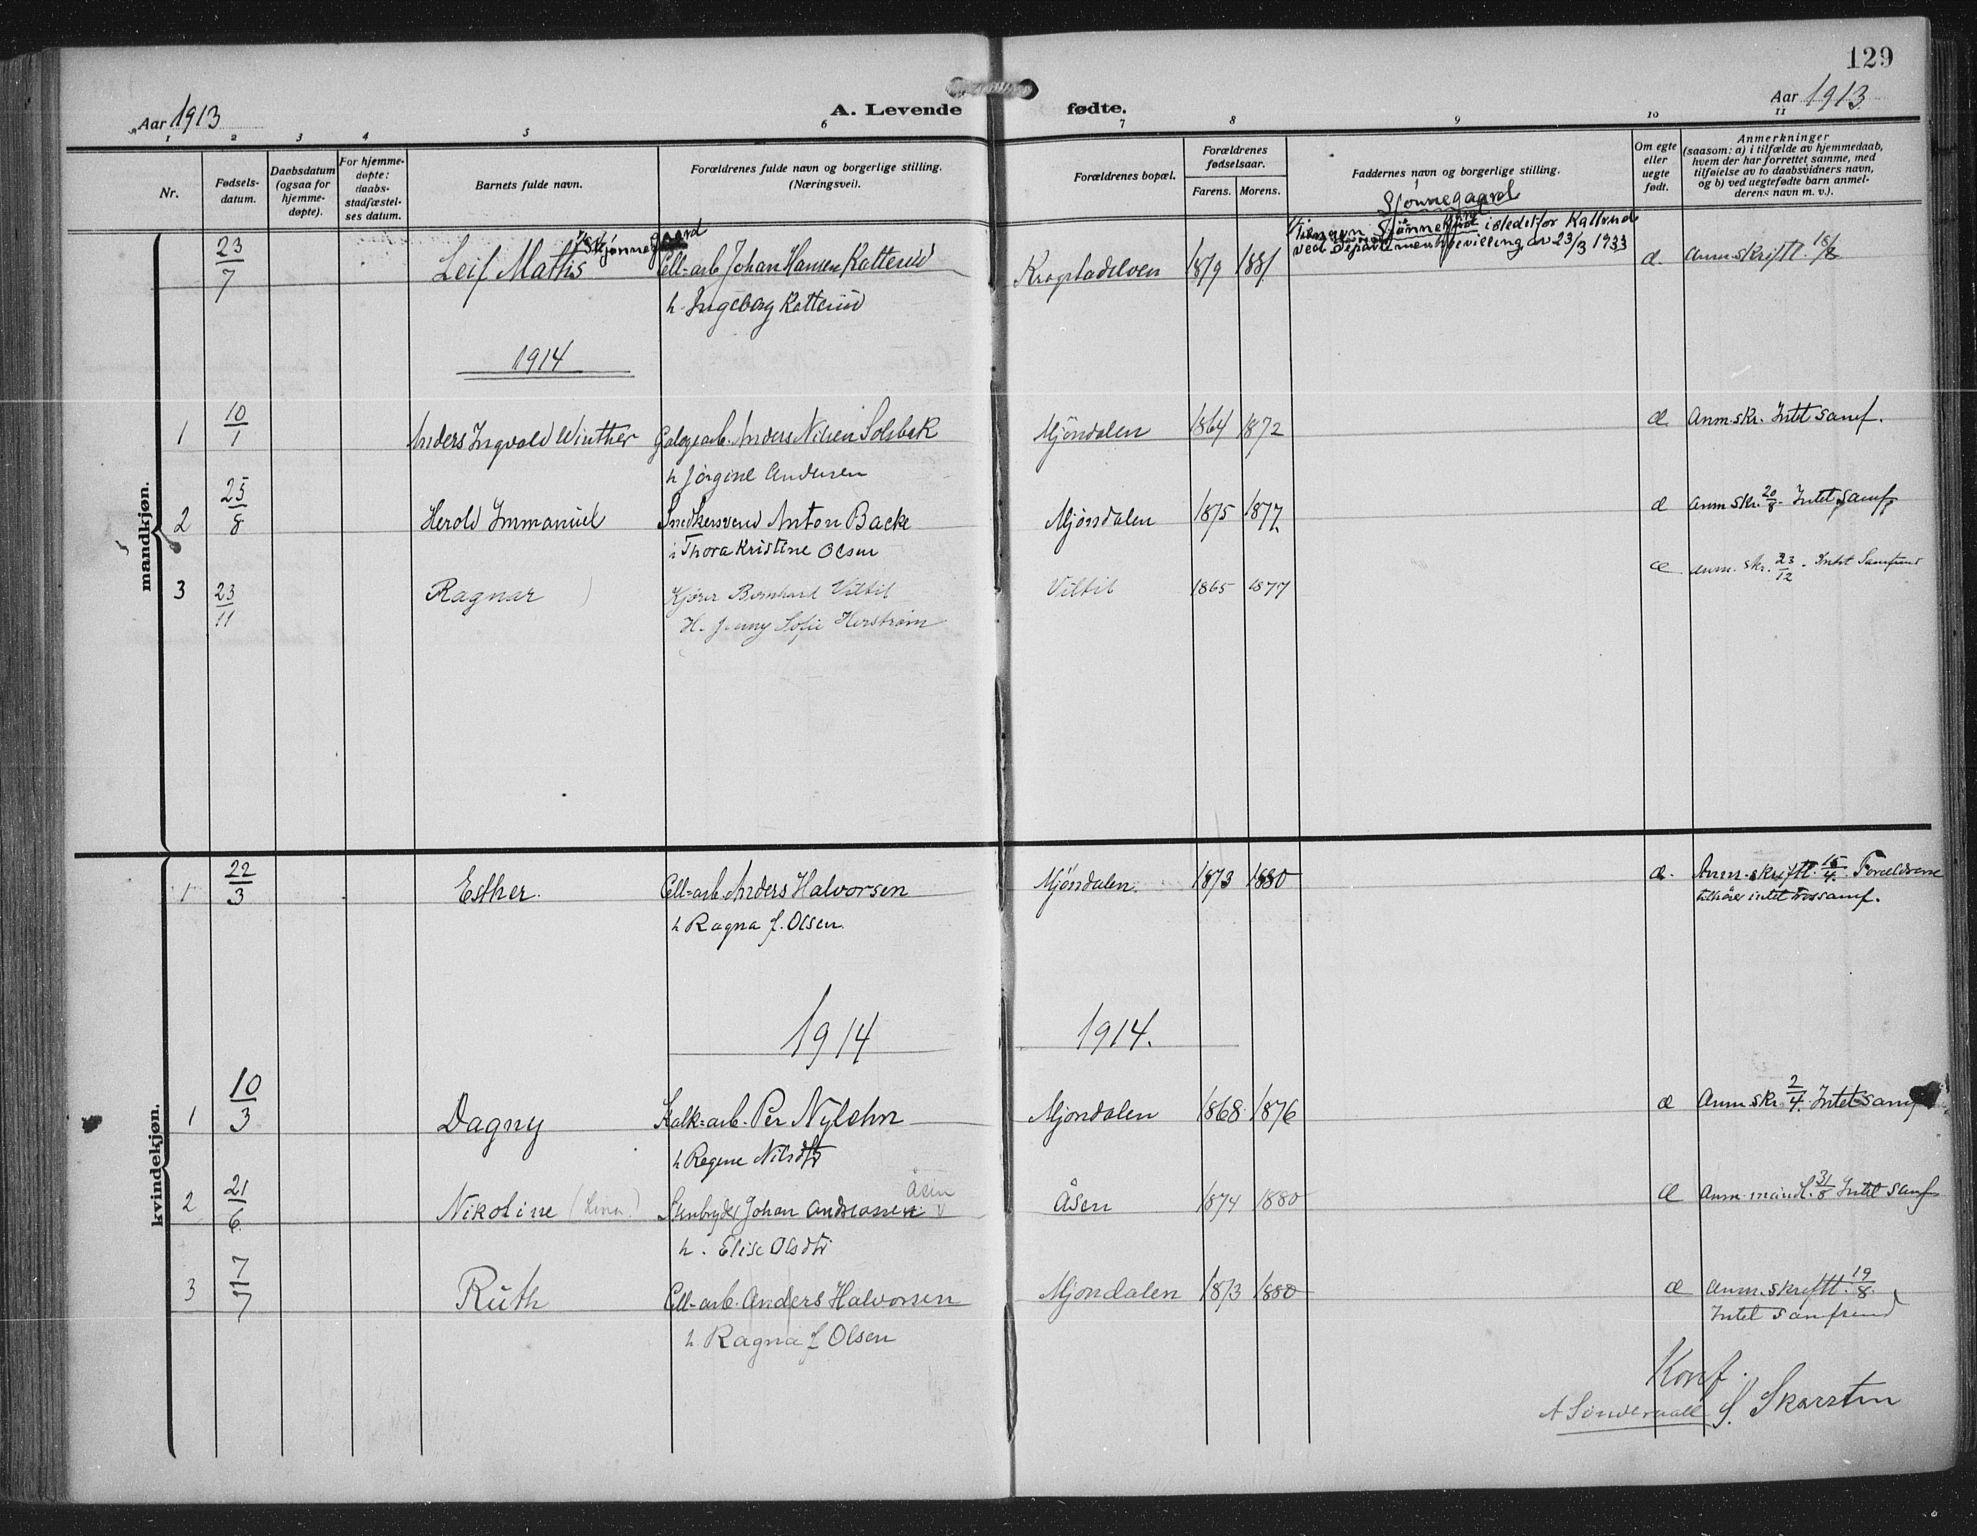 129
Aar 1913
A. Levende fødte.
Aar 1913
1 2 3 4 5 6 7 8 9 10 11
Nr.
Fødsels-
datum.
Daabsdatum
(ogsaa for
hjemme-
døpte).
For hjemme-
døpte:
daabs-
stadfæstel-
ses datum.
Barnets fulde navn.
Forældrenes fulde navn og borgerlige stilling.
(Næringsvei).
Forældrenes bopæl.
Forældrenes
fødselsaar.
Farens. Morens.
Faddernes navn og borgerlige stilling.
Om egte
eller
uegte
født.
Anmerkninger
(saasom: a) i tilfælde av hjemmedaab,
hvem der har forrettet samme, med
tilføielse av to daabsvidners navn,
og b) ved uegtefødte barn anmel-
derens navn m. v.).
mandkjøn.
23/7 Leif Mathis Cell-arb. Johan Hansen Katterud Krogstadelven 1879 1881 æ. Anm. skriftl. 18/8
h. Ingeborg Katterud
istedetfor Katterud
ved departementsbevilling av 23/3 1933
1914
1 10/1 Anders Ingvald Winther Anders Nilsen Solbak Mjöndalen 1864 1872 æ Anm. skr. Intet samf.
h Jörgine Andersen
2 25/8 Herold Immanuel Snedkersvend Anton Backe Mjöndalen 1875 1877 æ Anm skr. 20/8. Intet samf.
Thora Kristine Olsen
3 23/11 Ragnar Kjörer Bernhard Viltil Viltil 1865 1877 æ anm. skr. 23/12. Intet Samfund
H. Jenny Sofie Herström
kvindekjøn.
1 22/3 Esther. Cell-arb. Anders Halvorsen Mjöndalen. 1873 1880 æ. Anm. skriftl. 15/4. Forældrene
h Ragna f. Olsen. tilhører intet trossamf.
1914 1914.
1 10/3 Dagny Kalk-arb. Per Nylehn Mjöndalen 1868 1876 æ Anm skr. 2/4. Intet samf
h Regine Nilsdtr
2 21/6 Nikoline Johan Andreassen Åsen Åsen 1874 1880 æ Anm. mündl. 31/8 Intet samf
h. Elise Olsdtr
3 7/7 Ruth Cell-arb. Anders Halvorsen Mjöndalen 1873 1880 æ Anm. skriftl. 19/8.
h. Ragna f Olsen Intet samfund
Konf.
S. Skarsten